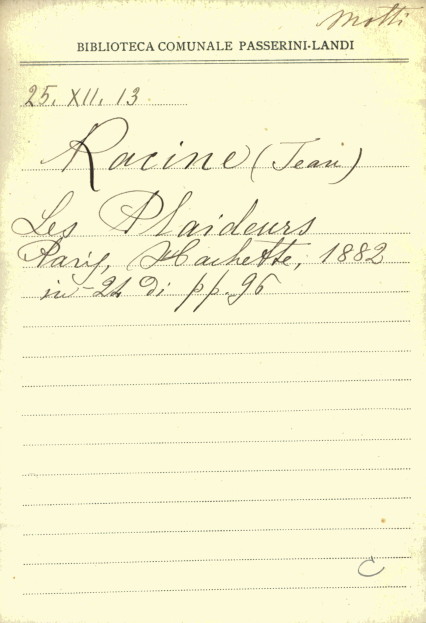 Motti
BIBLIOTECA COMUNALE PASSERINI-LANDI
25. XII. 13
Racine (Jean)
Les Plaideurs
Paris, Hachette, 1882
in-24 di pp. 96
C